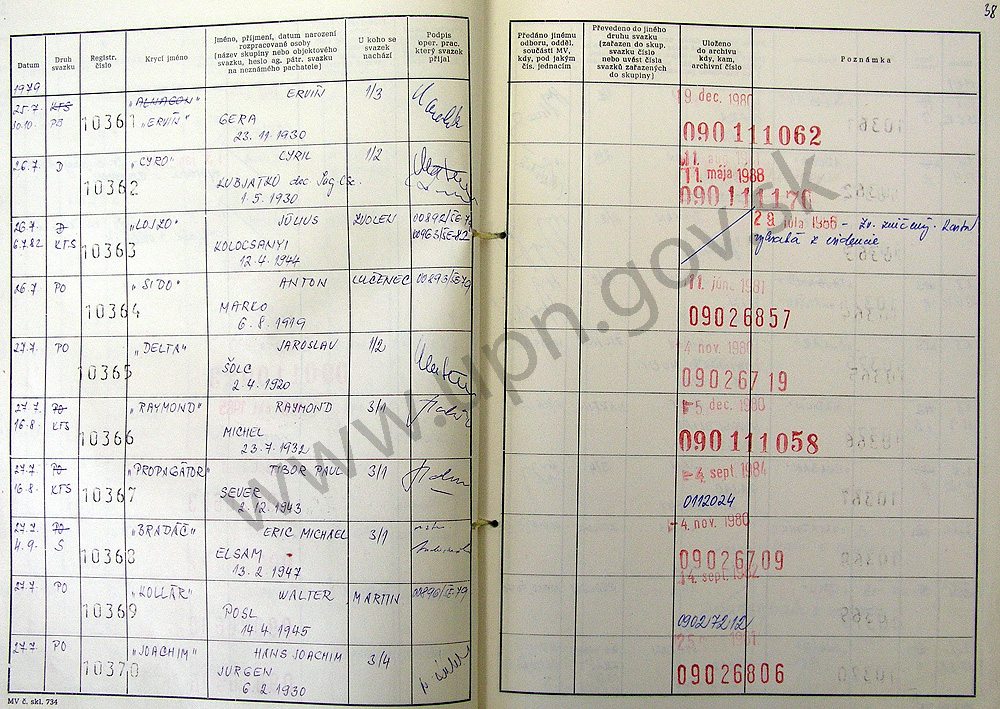 38
Datum
Druh svazku
Registr. číslo
Krycí jméno
Jméno, příjmení, datum narození
rozpracované osoby
(název skupiny nebo objektového
svazku, heslo ag. pátr. svazku
na neznámého pachatele)
U koho se
svazek
nachází
Podpis
oper. prac.
který svazek
přijal
Předáno jinému
odboru, odděl.
součásti MV,
kdy, pod jakým
čís. jednacím
Převedeno do jiného
druhu svazku
(zařazen do skup.
svazku číslo
nebo uvést čísla
svazků zařazených
do skupiny)
Uloženo
do archivu
kdy, kam,
archivní číslo
Poznámka
1979
25.7. KTS „ALMAGON“ ERVÍN 1/3 19 dec. 1980
30.10. PO 10361 „ERVÍN“ GERA 090 111062
23.11.1930
26.7. D „CYRO“ CYRIL 1/2 11. mája 1988
10362 doc. Ing. CSc. 090 111170
1.5.1930
26.7. D „LOJZO“ JÚLIUS ZVOLEN 00892/SE-79 29 júla 1986 – Zv. zničený. Karta
6.7.82 KTS 10363 KOLOCSANYI 00963/SE-82 z evidencie
12.4.1944
26.7 PO „SIDO“ ANTON LUČENEC 00893/SE-79 11. júna 1981
10364 MARKO 09026857
6.8.1919
27.7. PO „DELTA“ JAROSLAV 1/2 14 nov. 1980
10365 ŠOLC 09026719
2.4.1920
27.7. PO „RAYMOND“ RAYMOND 3/1 5 dec. 1980
16.8. KTS 10366 MICHEL 090 111058
23.7.1932
27.7. PO „PROPAGÁTOR“ TIBOR PAUL 3/1 -4 sept 1984
16.8. KTS 10367 SEVER 0112024
2.12.1943
27.7. PO „BRADÁČ“ ERIC MICHAEL 3/1 -4. nov. 1980
4.9. S 10368 ELSAM 09026709
13.2.1947
27.7. PO „KOLLÁR“ WALTER MARTIN 00896/SE-79 14. sept. 1982
10369 POSL 09027212
14.4.1945
27.7. PO „JOACHIM“ HANS JOACHIM 3/4
10370 JURGEN 09026806
6.2.1930
MV č. skl. 734
www.upn.gov.sk